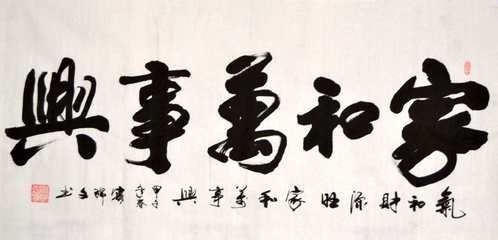 家和萬事興
氣和財源旺家和萬事興
甲午
年春
瑞文书